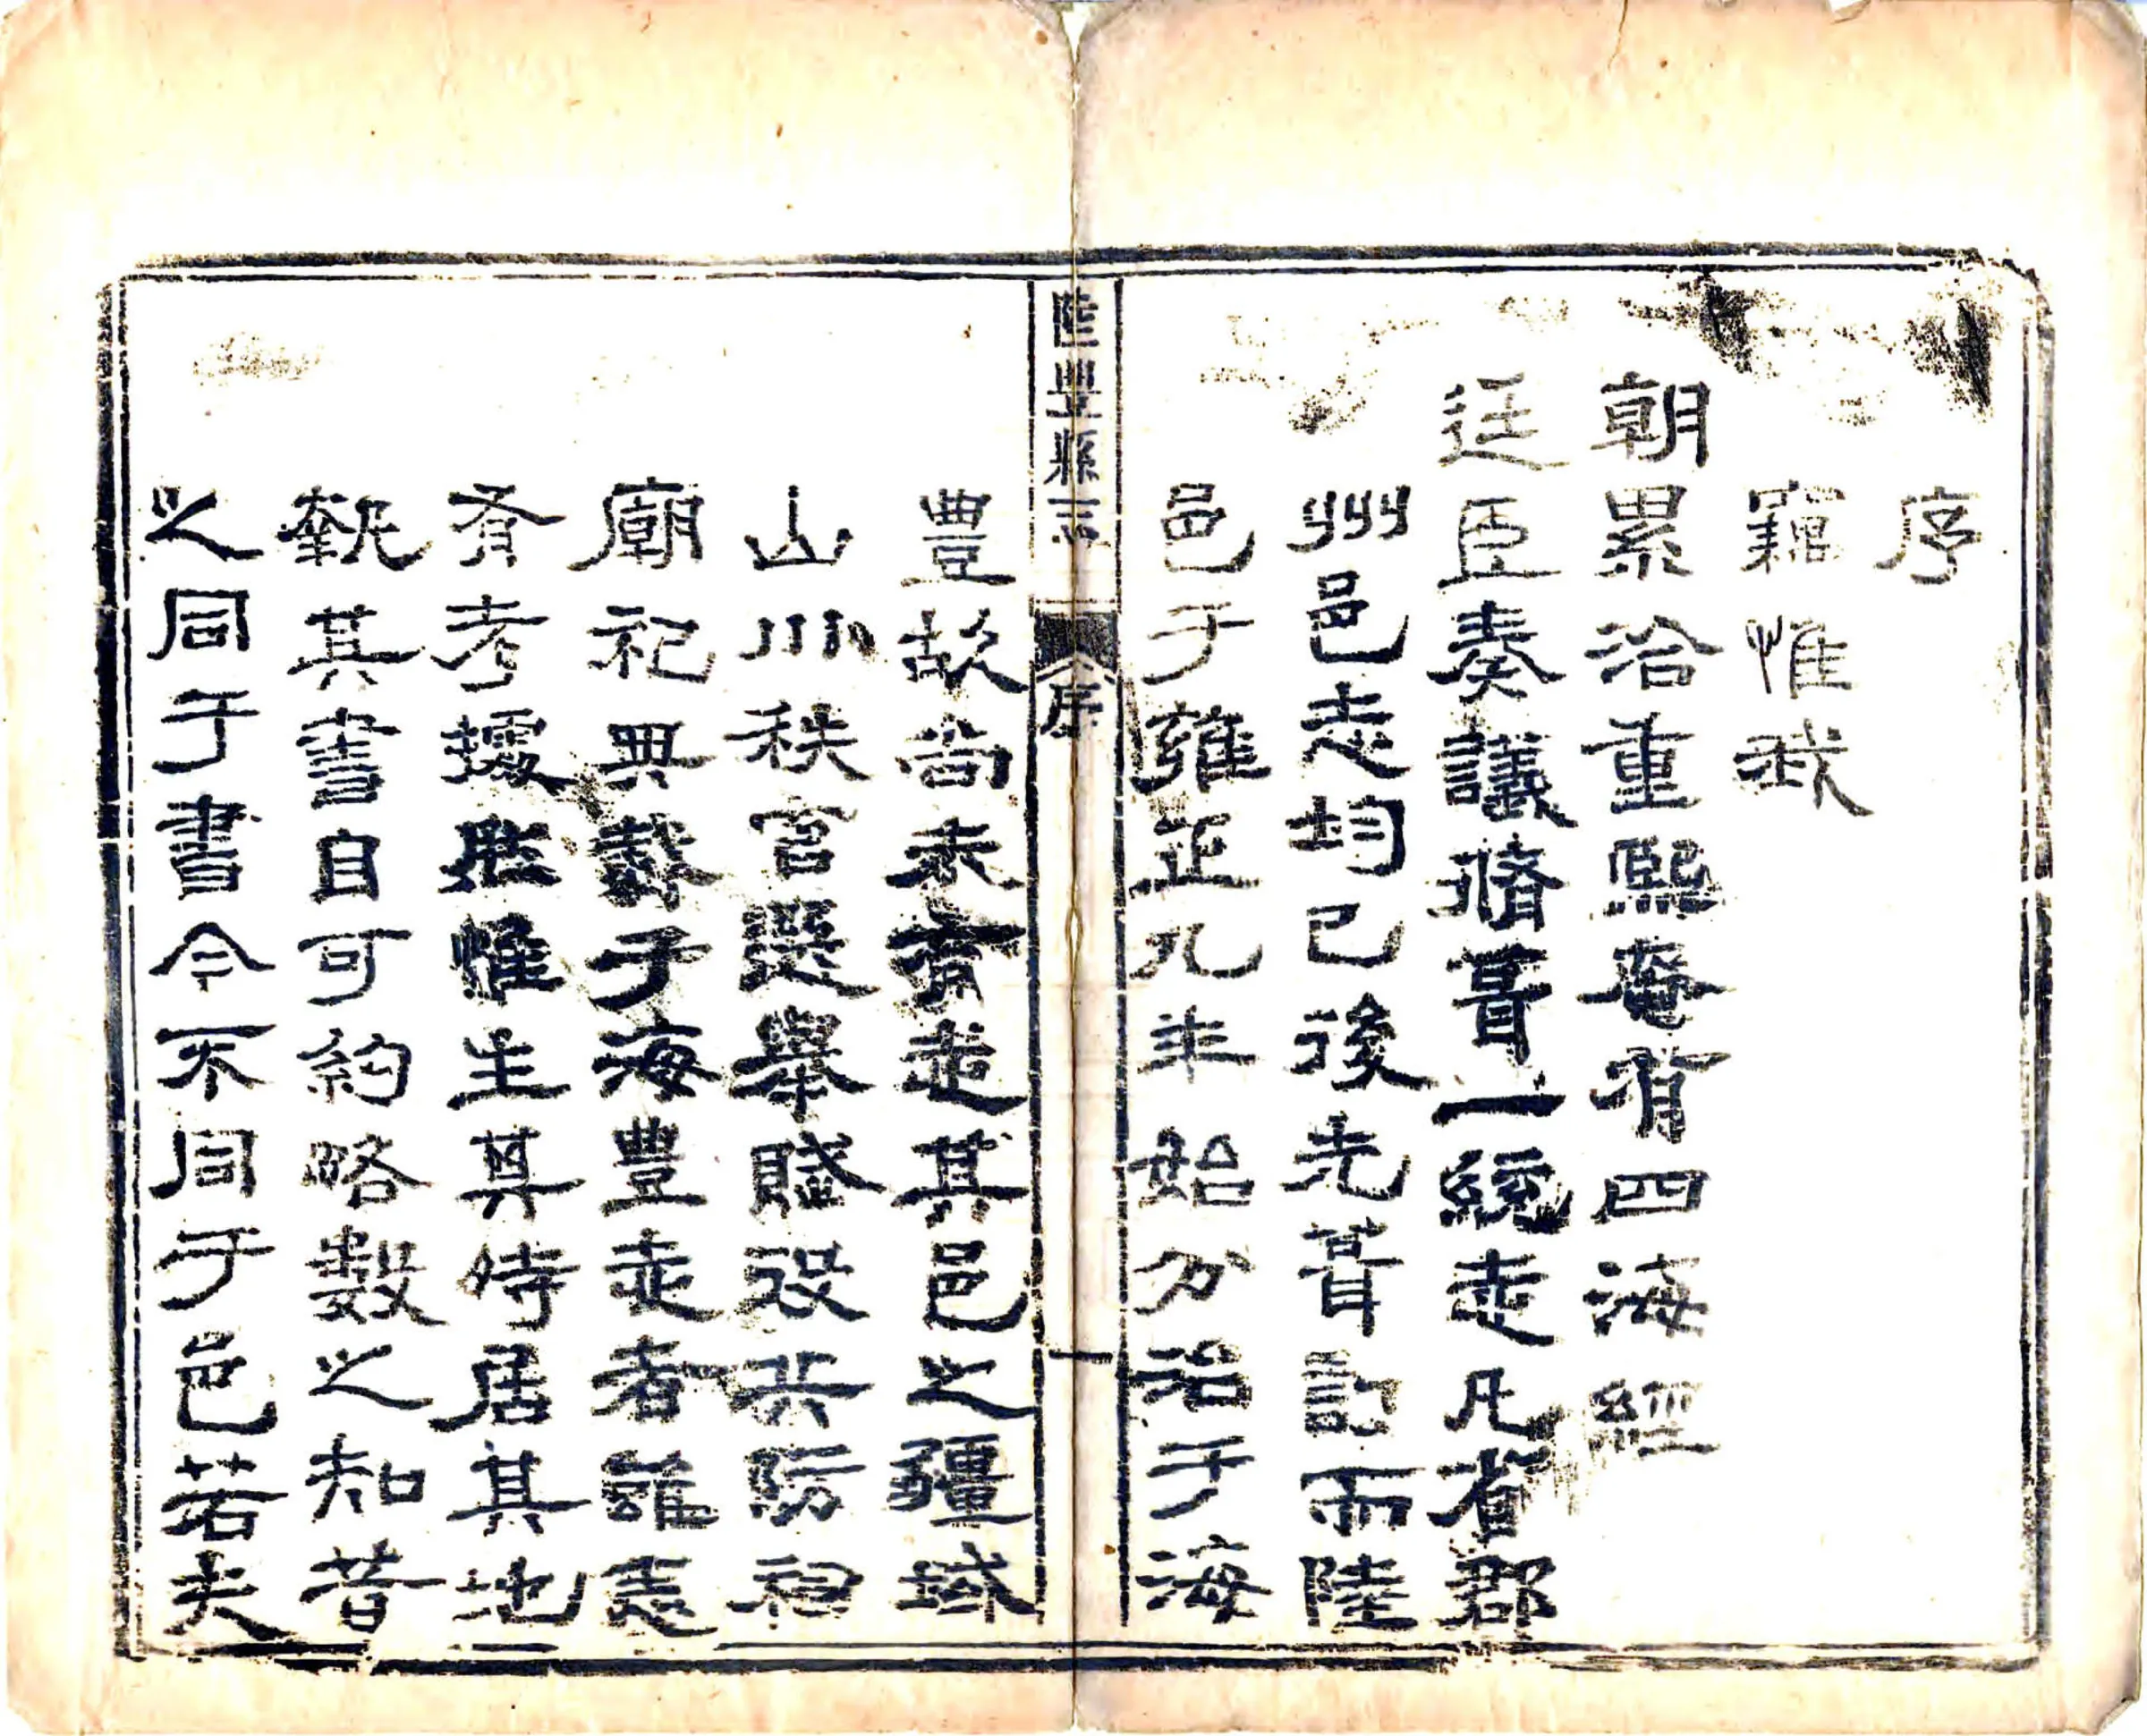 序
竊惟我
朝累洽重熙奄有四海經
廷臣奏議脩葺一統志凡省郡
州邑志均已後先葺訂而陸
邑于雍正九年始分治于海
陸豐縣志
序
一
豐故尚未有志其邑之疆域
山川秩官選舉賦役共防祠
廟祀典繫于海豐志者雖憲
有考據然惟生其時居其地
執其書自可約略數之知昔
之同于書今不同于邑若夫